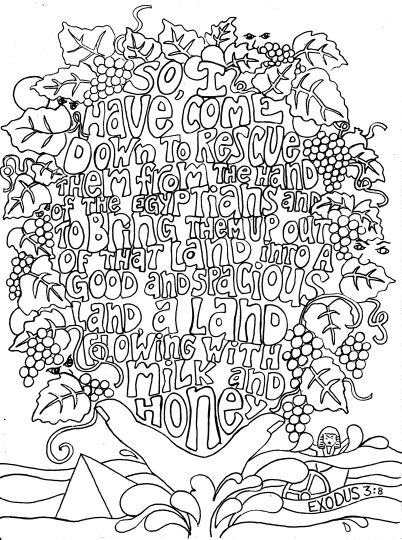 So, I
Have Come
Down to Rescue
them from the Hand
of the Egyptians and
to Bring them up out
of that Land into a
Good and spacious
Land, a Land
flowing with
Milk and
Honey
EXODUS 3:8